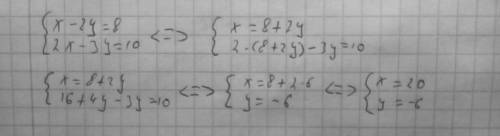 { x - 2y = 8
2x - 3y = 10 <=> { x = 8 + 2y
2·(8 + 2y) - 3y = 10
{ x = 8 + 2y
16 + 4y - 3y = 10 <=> { x = 8 + 2·6
y = -6 <=> { x = 20
y = -6